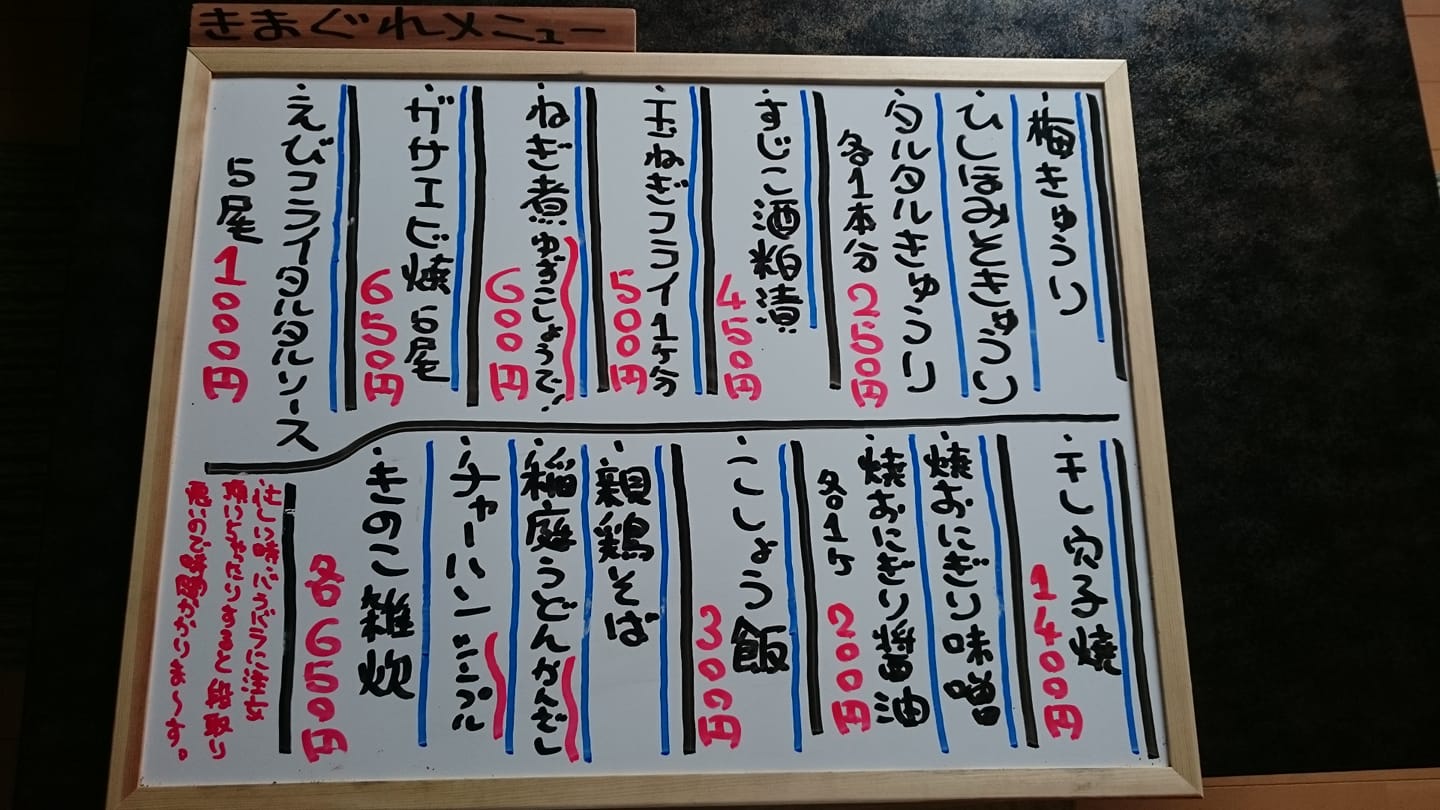 きまぐれメニュー
・梅きゅうり
・ひしほみそきゅうり
・タルタルきゅうり
各1本分 250円
・すじこ酒粕漬
450円
・玉ねぎフライ1ヶ分
500円
・ねぎ煮ゆずこしょうで!
600円
・ガサエビ焼5尾
650円
・えびフライタルタルソース
5尾 1000円
・干し穴子焼
1400円
・焼おにぎり味噌
・焼おにぎり醤油
各1ヶ 200円
・こしょう飯
300円
・親鶏そば
・稲庭うどんかんざし
・チャーハンシンプル
・きのこ雑炊
各650円
忙しい時、バラバラに注文
頂いちゃったりすると段取り
悪いので時間かかりま〜す。